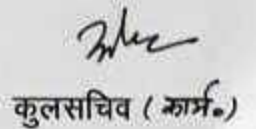 कुलसचिव (कार्म॰)